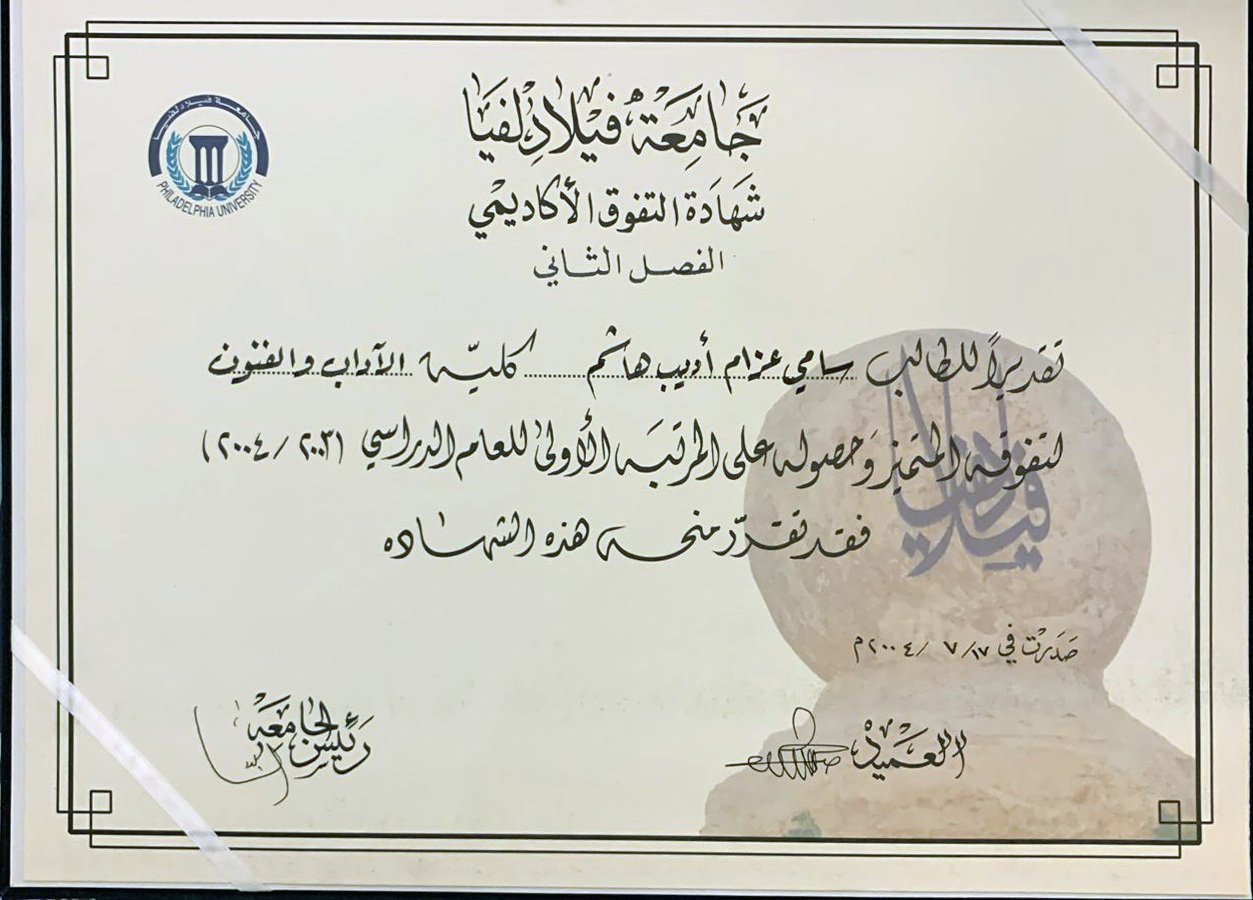 جامعة فيلادلفيا
PHILADELPHIA UNIVERSITY
جَامِعَة فيلادِلفيَا
شَهَادَة التفوق الأكاديمي
الفصل الثاني
تقديراً للطالب سامي عزام أديب هاشم كليّة الآداب والفنون
لتفوقه المتميز وَحصوله على المرتبَة الأولى للعام الدراسي (٢٠٠٣/٢٠٠٤)
فقد تقرّر منحه هذه الشهاده
فيلادلفيا
صَدَرت في ١٧/٧/٢٠٠٤م
العَميد
رَئيس الجَامعَة